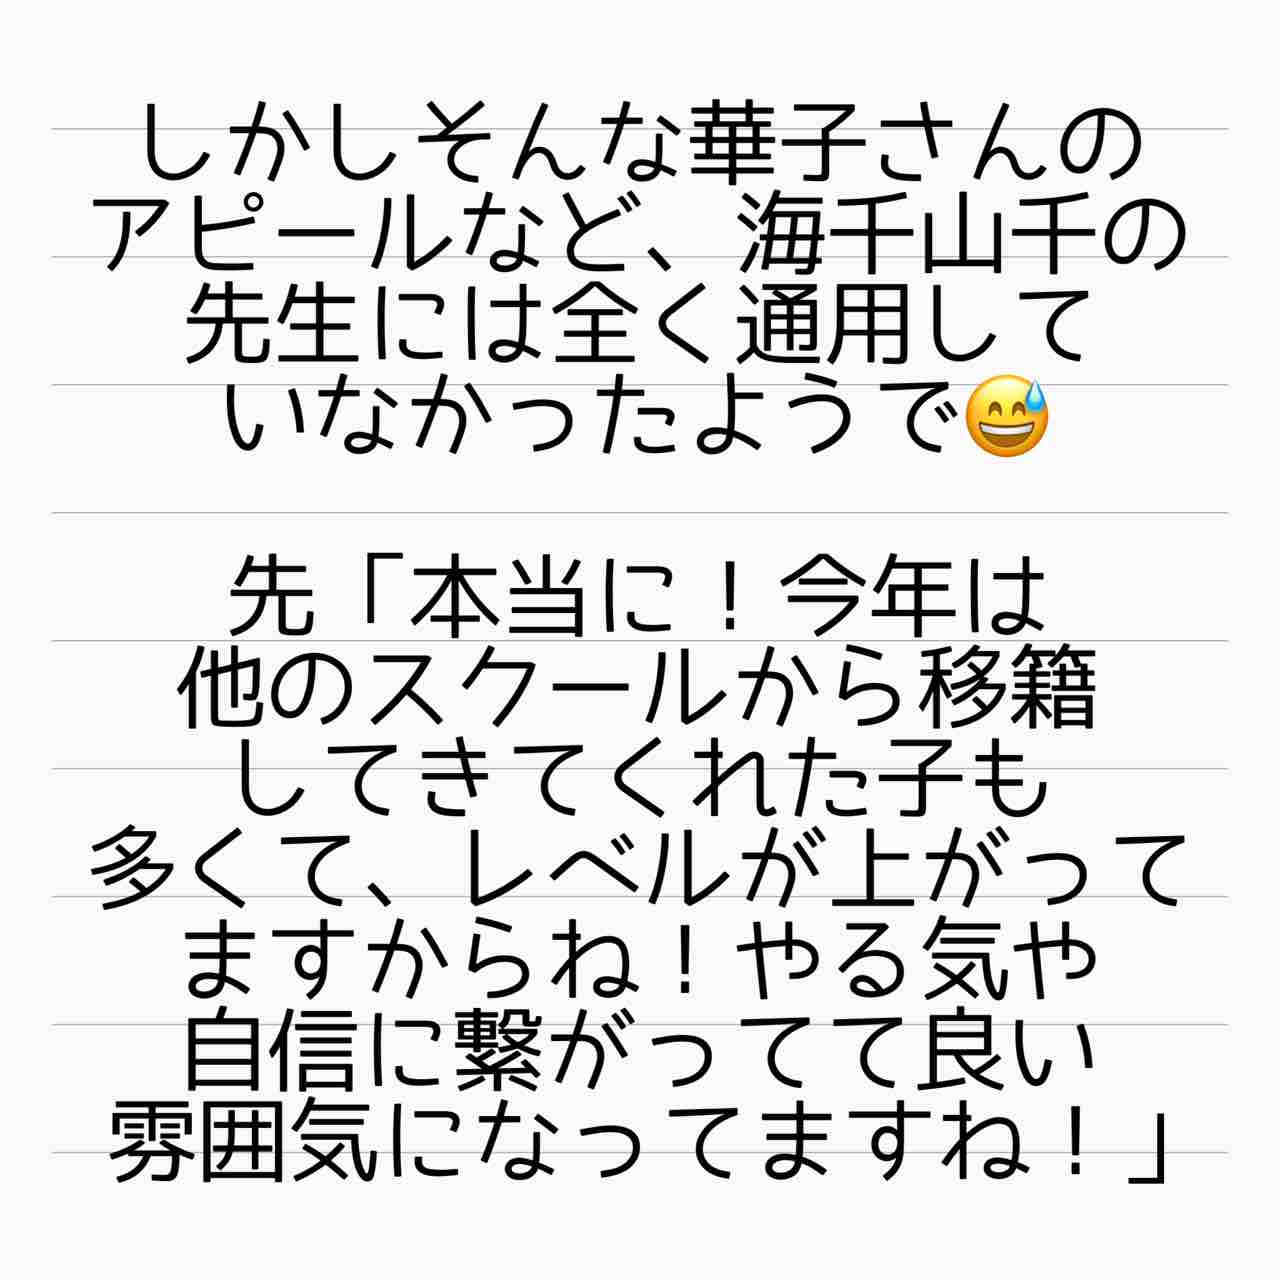 しかしそんな華子さんの
アピールなど、海千山千の
先生には全く通用して
いなかったようで😅
先「本当に！今年は
他のスクールから移籍
してきてくれた子も
多くて、レベルが上がって
ますからね！やる気や
自信に繋がってて良い
雰囲気になってますね！」